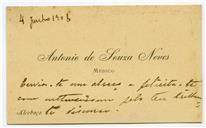 4 Junho 1908
Antonio de Souza Neves
MEDICO
Envia-te um abraço e felicita-te
com enthusiasmo pelo teu
discurso.
Alcobaça